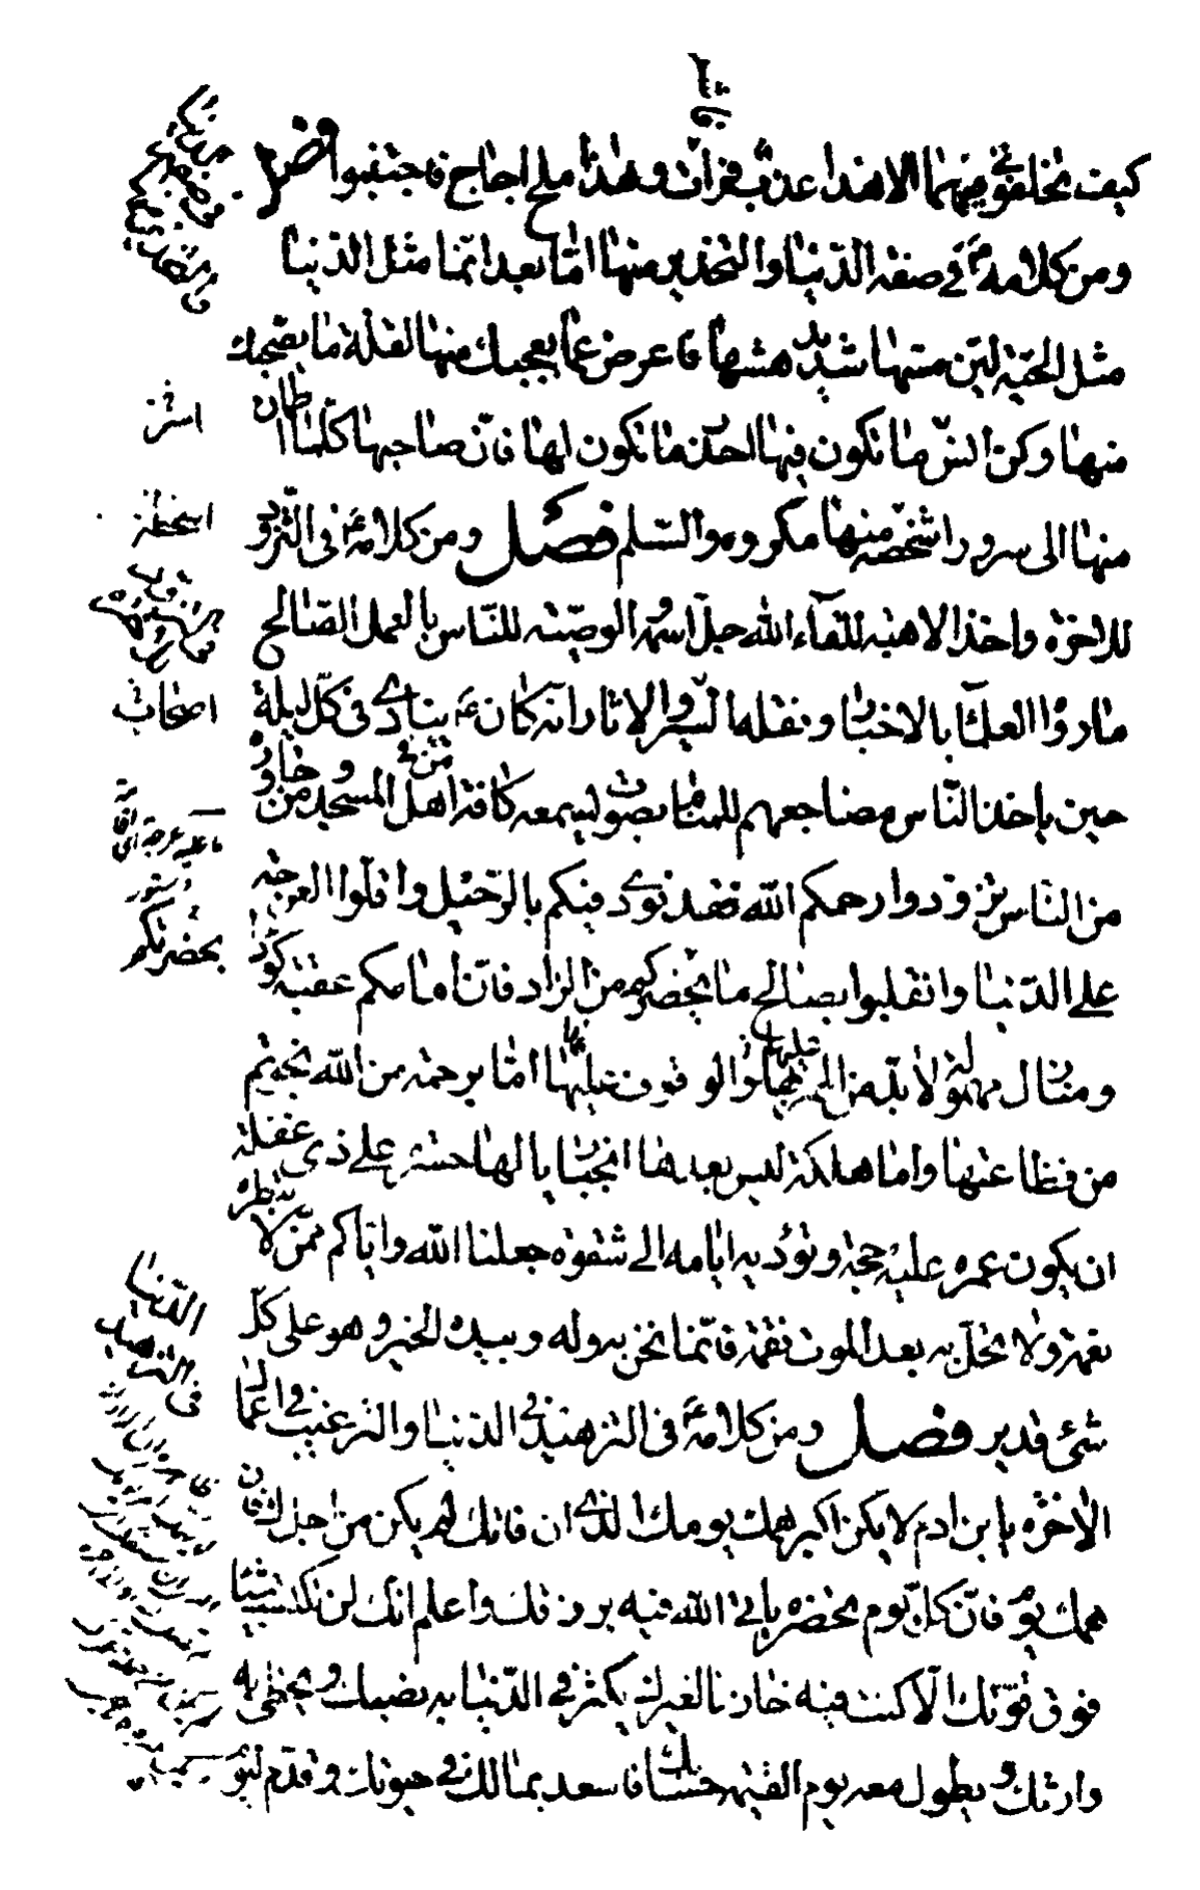 كيف تخلفوني فيهما الا هذا عذب فرات وهذا ملح اجاج فاجتنبوا فصل
ومن كلامه ع في صفة الدنيا والتحذير منها اما بعد انما مثل الدنيا
مثل الحية لين مسها شديد نهشها فاعرض عما يعجبك منها لقلة ما يصحبك
منها وكن اسر ما تكون فيها احذر ما تكون لها فان صاحبها كلما اطمان
منها الى سرور اشخصه منها مكروه والسلم فصل ومن كلامه ع في التزود
للاخرة واخذ الاهبة للقآء الله جل اسمه والوصية للناس بالعمل الصالح
ما رواه العلمآ بالاخبار ونقله السير والاثار انه كان ع ينادي في كل ليلة
حين ياخذ الناس مضاجعهم للمنام بصوت يسمعه كافة اهل المسجد ومن جاوره
من الناس تزودوا رحمكم الله فقد نودي فيكم بالرحيل واقلوا العرجة
على الدنيا وانقلبوا بصالح ما يحضركم من الزاد فان امامكم عقبة كؤدا
ومنازل مهولة لا بد من الممر بها والوقوف عليها اما برحمة من الله نجوتم
من فظاعتها واما هلكة ليس بعدها انجبار يا لها حسرة على ذي غفلة
ان يكون عمره عليه حجة وتؤديه ايامه الى شقوة جعلنا الله واياكم ممن لا تبطره
نعمة ولا تحل به بعد الموت نقمة فانما نحن به وله وبيده الخير وهو على كل
شئ قدير فصل ومن كلامه ع في التزهيد في الدنيا والترغيب في اعمال
الاخرة يا بن ادم لا يكن اكبر همك يومك الذي ان فاتك لم يكن من اجلك فان
همك يوم فان كل يوم تحضره ياتي الله فيه برزقك واعلم انك لن تكتسب شيئا
فوق قوتك الا كنت فيه خازنا لغيرك يكثر في الدنيا به نصبك ويحظى به
وارثك ويطول معه يوم القيمة حسابك فاسعد بمالك في حيوتك وقدم ليوم
اصحاب
بحضرتكم
الدنيا
في التزهيد